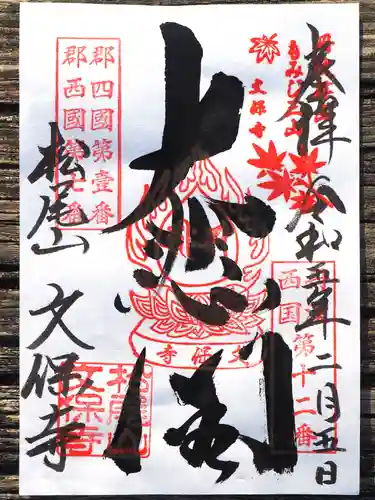 奉拝
令和五年二月五日
もみじでら
文保寺
西国第十二番
大悲閣
文保寺
郡四國第壹番
郡西國第七番
松尾山
文保寺
松尾山
文保寺